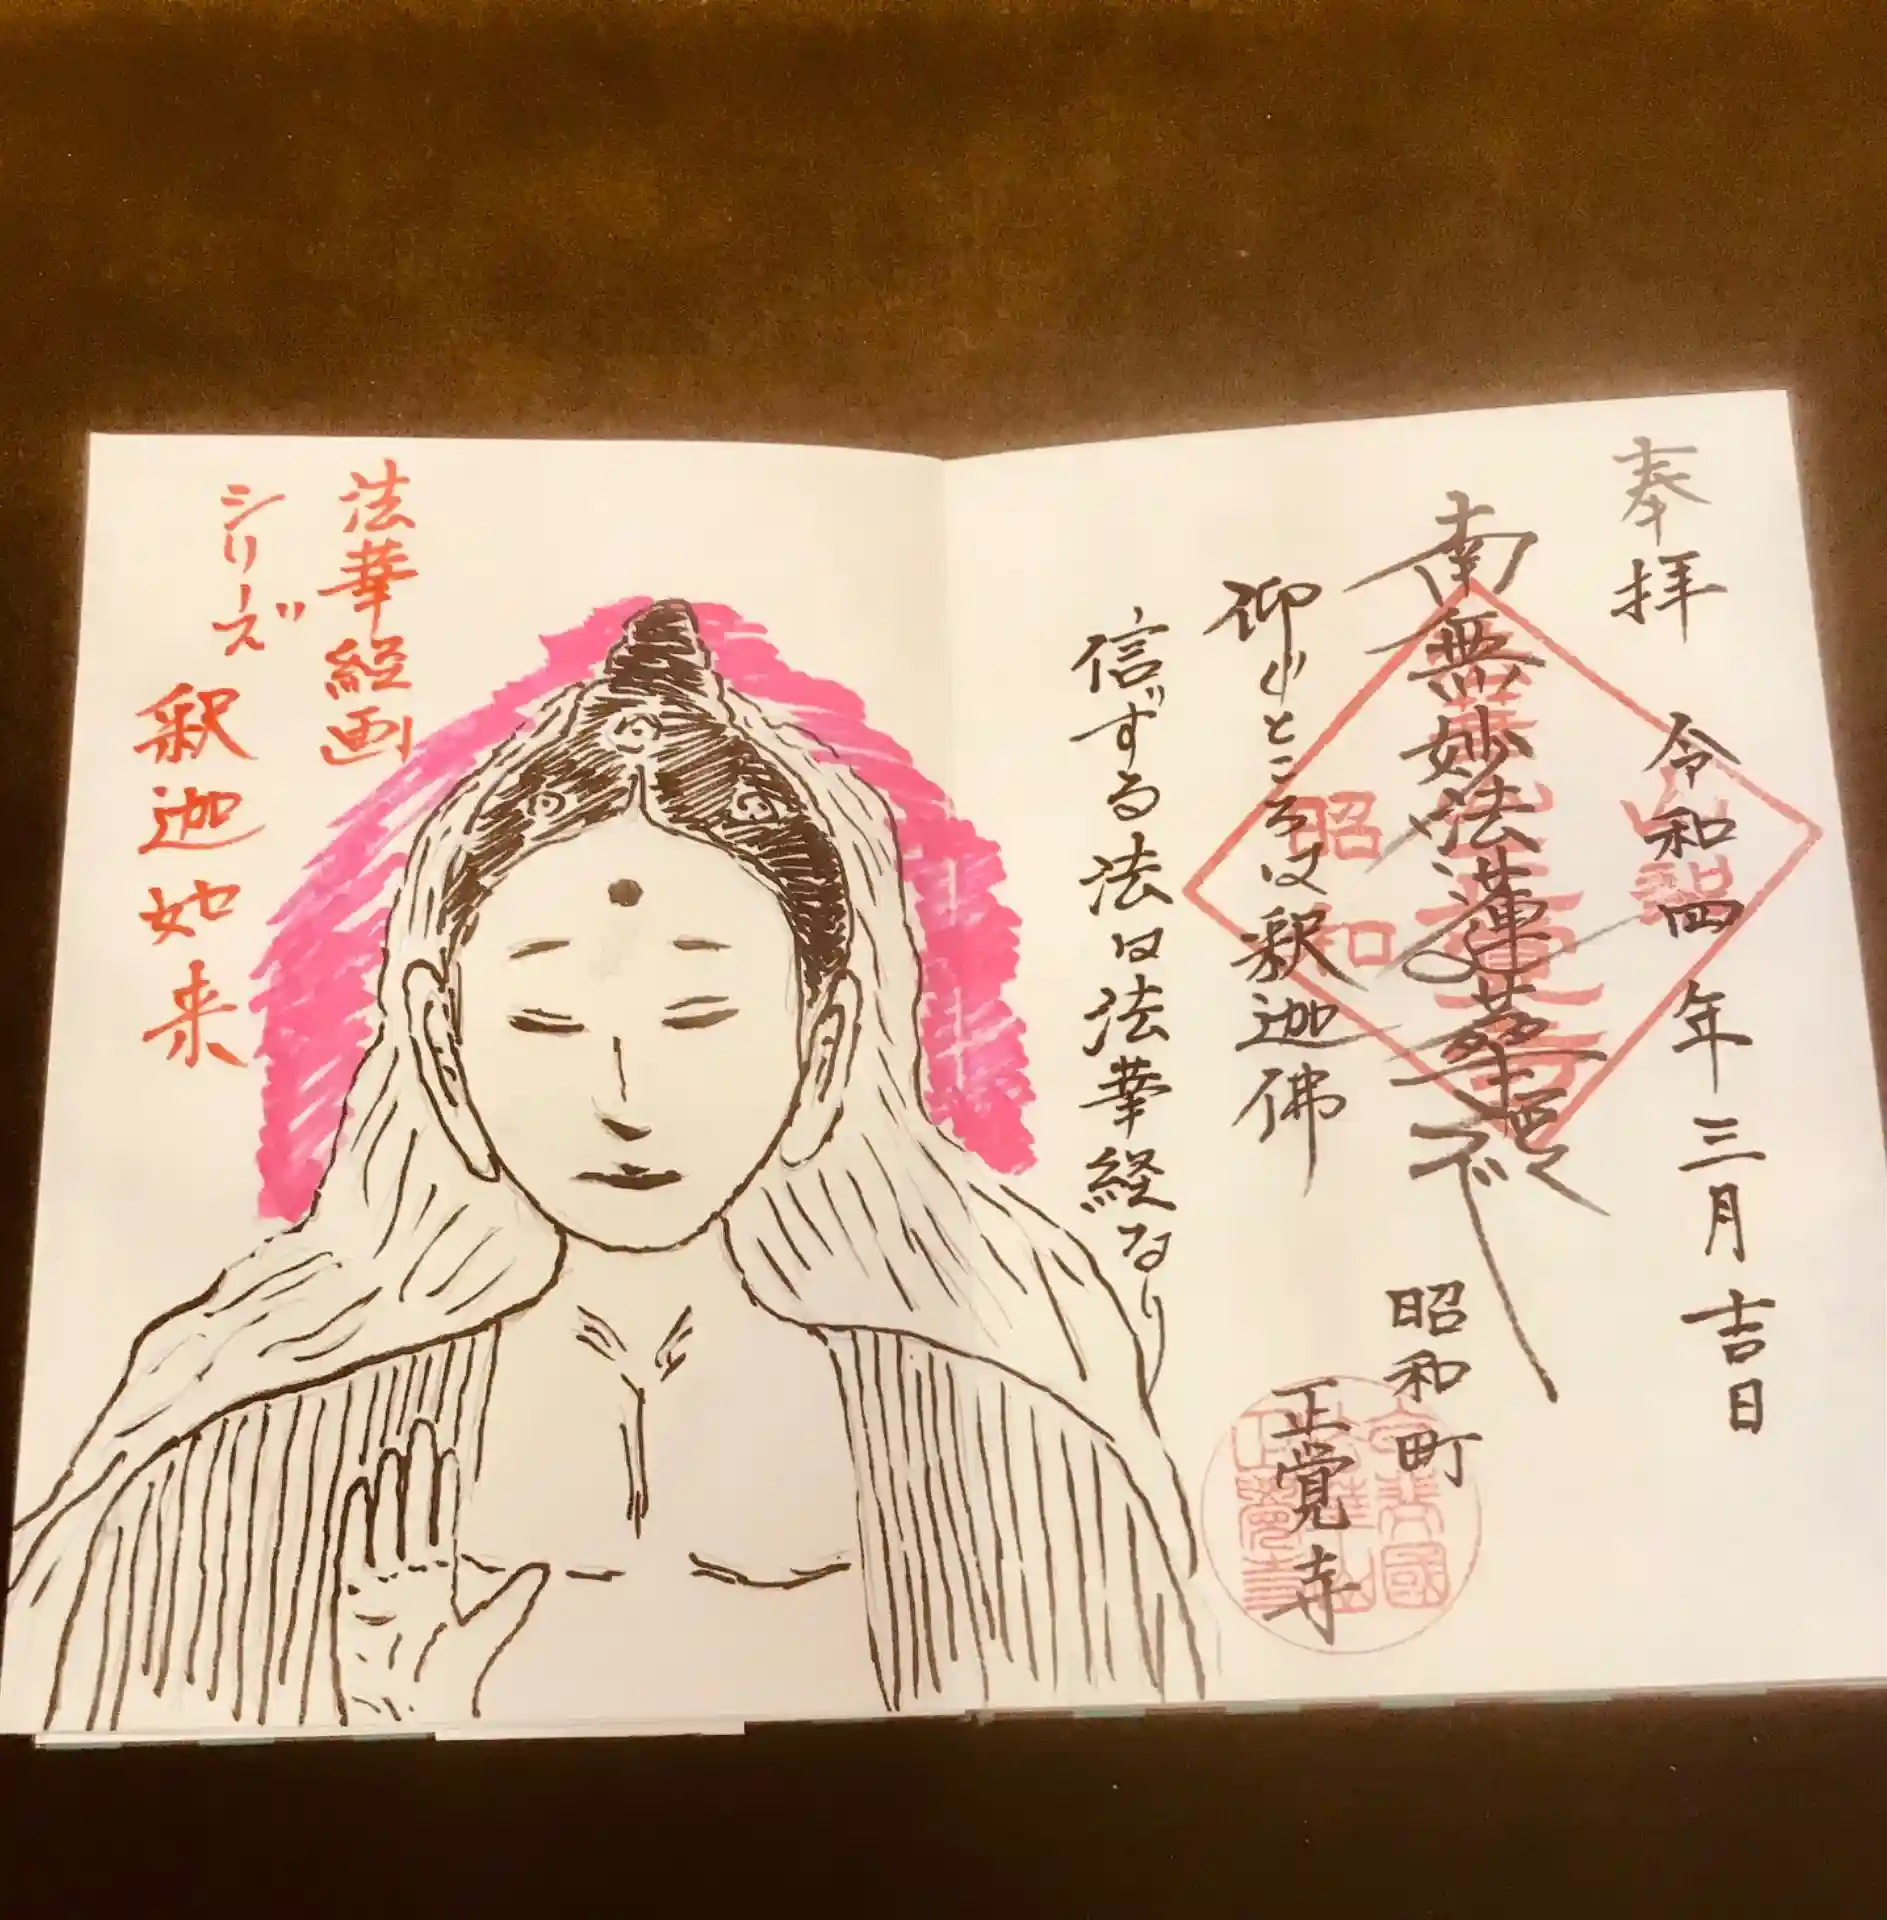 奉拝 令和四年三月吉日
南無妙法蓮華経
昭和町
仰ぐところは釈迦佛
正覚寺
信ずる法は法華経なり
法華経画
シリーズ
釈迦如来
昭和